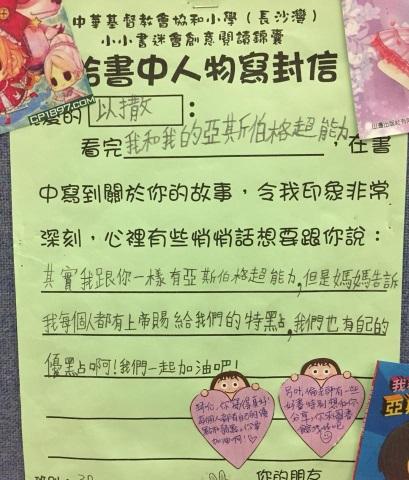 中華基督教會協和小學(長沙灣)
小小書迷會創意閱讀錦囊
給書中人物寫封信
CP1897.COM
愛的 以撒 :
看完我和我的亞斯伯格超能力,在書
中寫到關於你的故事,令我印象非常
深刻,心裡有些悄悄話想要跟你說:
其實我跟你一樣有亞斯伯格超能力,但是媽媽告訴
我每個人都有上帝賜給我們的特點,我們也有自己的
優點啊!我們一起加油吧!
你寫得真好!
每個人都有自己的優
加油啊!
有一些
好書特別想和你
分享,你來圖書
你的朋友